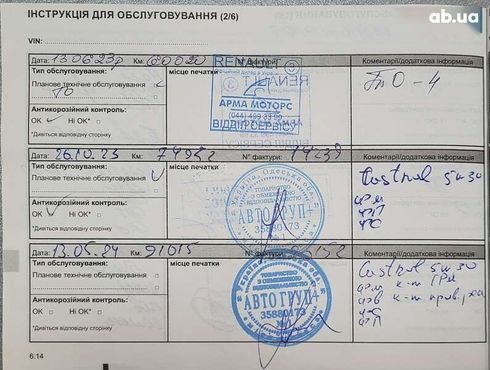 ab.ua
ІНСТРУКЦІЯ ДЛЯ ОБСЛУГОВУВАННЯ (2/6)
VIN:
Дата: 13.06.23р Км: 60020 № фактури: Коментарі/додаткова інформація
Тип обслуговування: місце печатки
Планове технічне обслуговування
ТО
RENAULT
АРМА МОТОРС
(044) 499 39 99
ВІДДІЛ СЕРВІСУ
Антикорозійний контроль:
OK Ні OK*
*Дивіться відповідну сторінку
Дата: 26.10.23 Км: № фактури: Коментарі/додаткова інформація
Тип обслуговування: місце печатки
Планове технічне обслуговування
Castrol 5w30
Україна, Одеська обл.
ТОВАРИСТВО
З ОБМЕЖЕНОЮ
ВІДПОВІДАЛЬНІСТЮ
АВТОГРУП+
35880173
Антикорозійний контроль:
OK Ні OK*
*Дивіться відповідну сторінку
Дата: 13.05.24 Км: 91015 № фактури: Коментарі/додаткова інформація
Тип обслуговування: місце печатки
Планове технічне обслуговування
Castrol 5w30
к-т ГРМ
ТОВАРИСТВО
З ОБМЕЖЕНОЮ
ВІДПОВІДАЛЬНІСТЮ
АВТОГРУП+
35880173
Антикорозійний контроль:
OK Ні OK*
*Дивіться відповідну сторінку
6.14